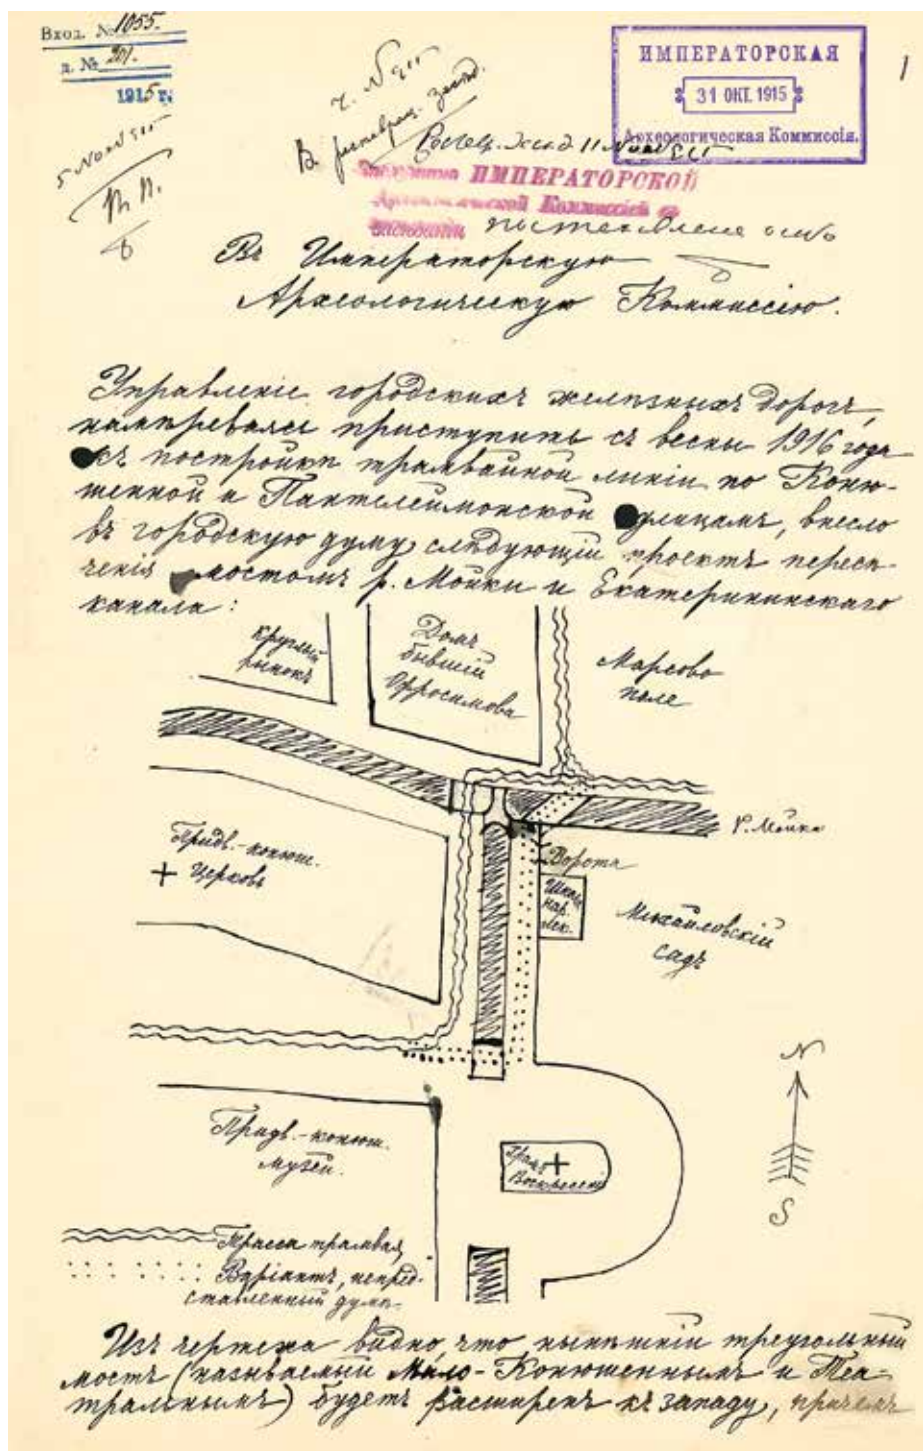 Вход. № 1055.
д. № 201.
1915 г.
5
ИМПЕРАТОРСКАЯ
31 ОКТ. 1915
Археологическая Коммиссія.
1
В
11
ИМПЕРАТОРСКОЙ
Коммиссіей
Въ Императорскую
Археологическую Коммиссію.
Управленіе городскихъ желѣзныхъ дорогъ,
намѣреваясь приступить съ весны 1916 года
къ постройкѣ трамвайной линіи по Коню-
шенной и Пантелеймонской улицамъ, внесло
въ городскую думу слѣдующій проектъ пересѣ-
ченія мостомъ р. Мойки и Екатерининскаго
канала:
Круглый
рынокъ
Домъ
бывшій
Офросимова
Марсово
поле
р. Мойка
Придв.-конюш.
Церковь
Ворота
Школа
нар.
иск.
Михайловскій
садъ
N
Придв.-конюш.
музей.
Храмъ
Воскресенія
S
Трасса трамвая
Варіантъ, непред-
ставленный думѣ.
Изъ чертежа видно, что нынѣшній треугольный
мостъ (называемый Мало-Конюшеннымъ и Теа-
тральнымъ) будетъ расширенъ къ западу, причемъ